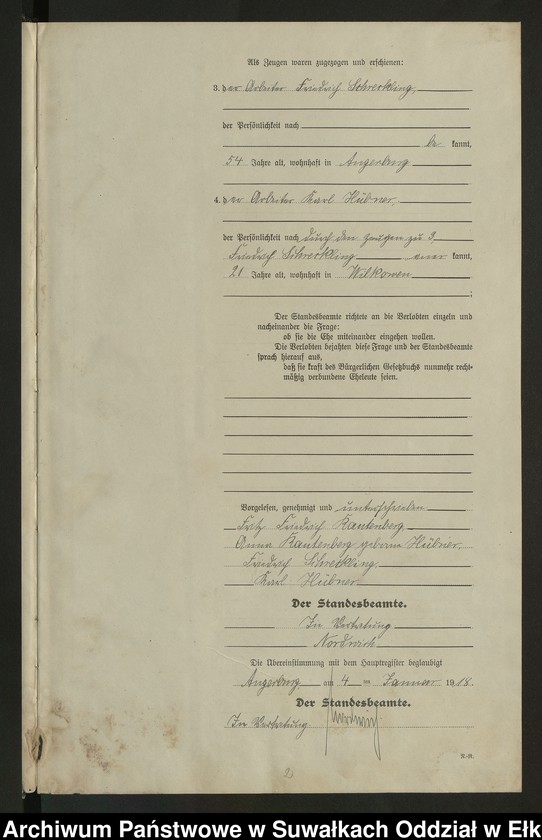 Als Zeugen waren zugezogen und erschienen:
3. der Arbeiter Friedrich Schreckling,
der Persönlichkeit nach
be kannt,
54 Jahre alt, wohnhaft in Angerburg
4. der Arbeiter Karl Hübner,
der Persönlichkeit nach durch den Zeugen zu 3
Friedrich Schreckling aner kannt,
21 Jahre alt, wohnhaft in Wilkowen
;
Der Standesbeamte richtete an die Verlobten einzeln und
nacheinander die Frage:
ob sie die Ehe miteinander eingehen wollen.
Die Verlobten bejahten diese Frage und der Standesbeamte
sprach hierauf aus,
daß sie kraft des Bürgerlichen Gesetzbuchs nunmehr recht-
mäßig verbundene Eheleute seien.
Vorgelesen, genehmigt und unterschrieben
Fritz Friedrich Kautenberg
Anna Kautenberg geborene Hübner
Friedrich Schreckling
Karl Hübner
Der Standesbeamte.
In Vertretung
Nordwich
Die Übereinstimmung mit dem Hauptregister beglaubigt
Angerburg am 4 ten Januar 1918.
Der Standesbeamte.
In Vertretung
N.-R.
2
Archiwum Państwowe w Suwałkach Oddział w Ełk